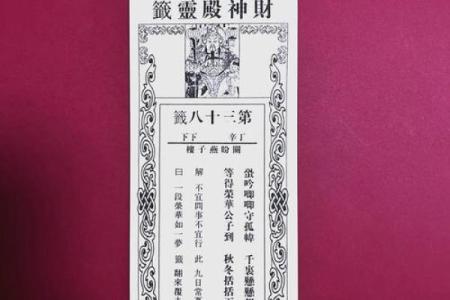 財神殿靈籤
第三十八籤
丁辛 下下
關盼燕子樓
蛩吟唧唧守孤幃 千裏懸懸
等得榮華公子到 秋冬括括
解 不宜問事不宜行 此 九日常
曰 一段榮華如一夢 籤 翻來覆